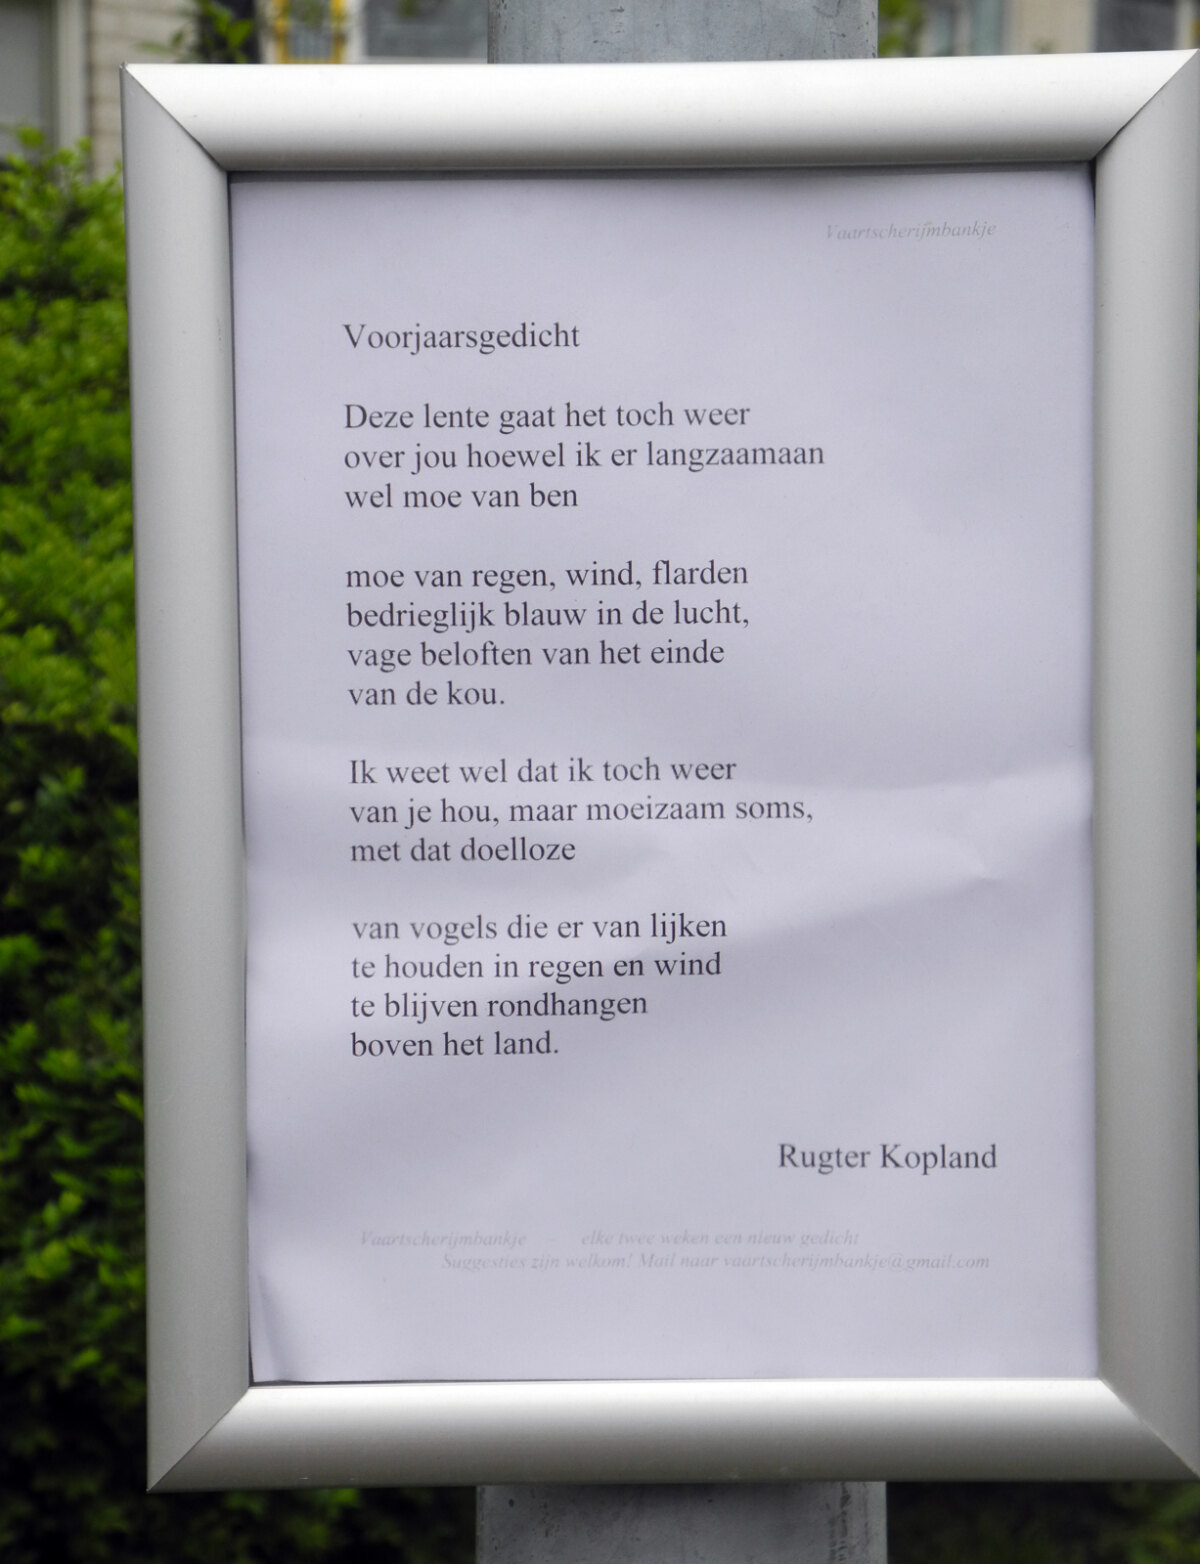 Vaartscherijmbankje
Voorjaarsgedicht
Deze lente gaat het toch weer
over jou hoewel ik er langzaamaan
wel moe van ben
moe van regen, wind, flarden
bedrieglijk blauw in de lucht,
vage beloften van het einde
van de kou.
Ik weet wel dat ik toch weer
van je hou, maar moeizaam soms,
met dat doelloze
van vogels die er van lijken
te houden in regen en wind
te blijven rondhangen
boven het land.
Rugter Kopland
Vaartscherijmbankje - elke twee weken een nieuw gedicht
Suggesties zijn welkom! Mail naar vaartscherijmbankje@gmail.com